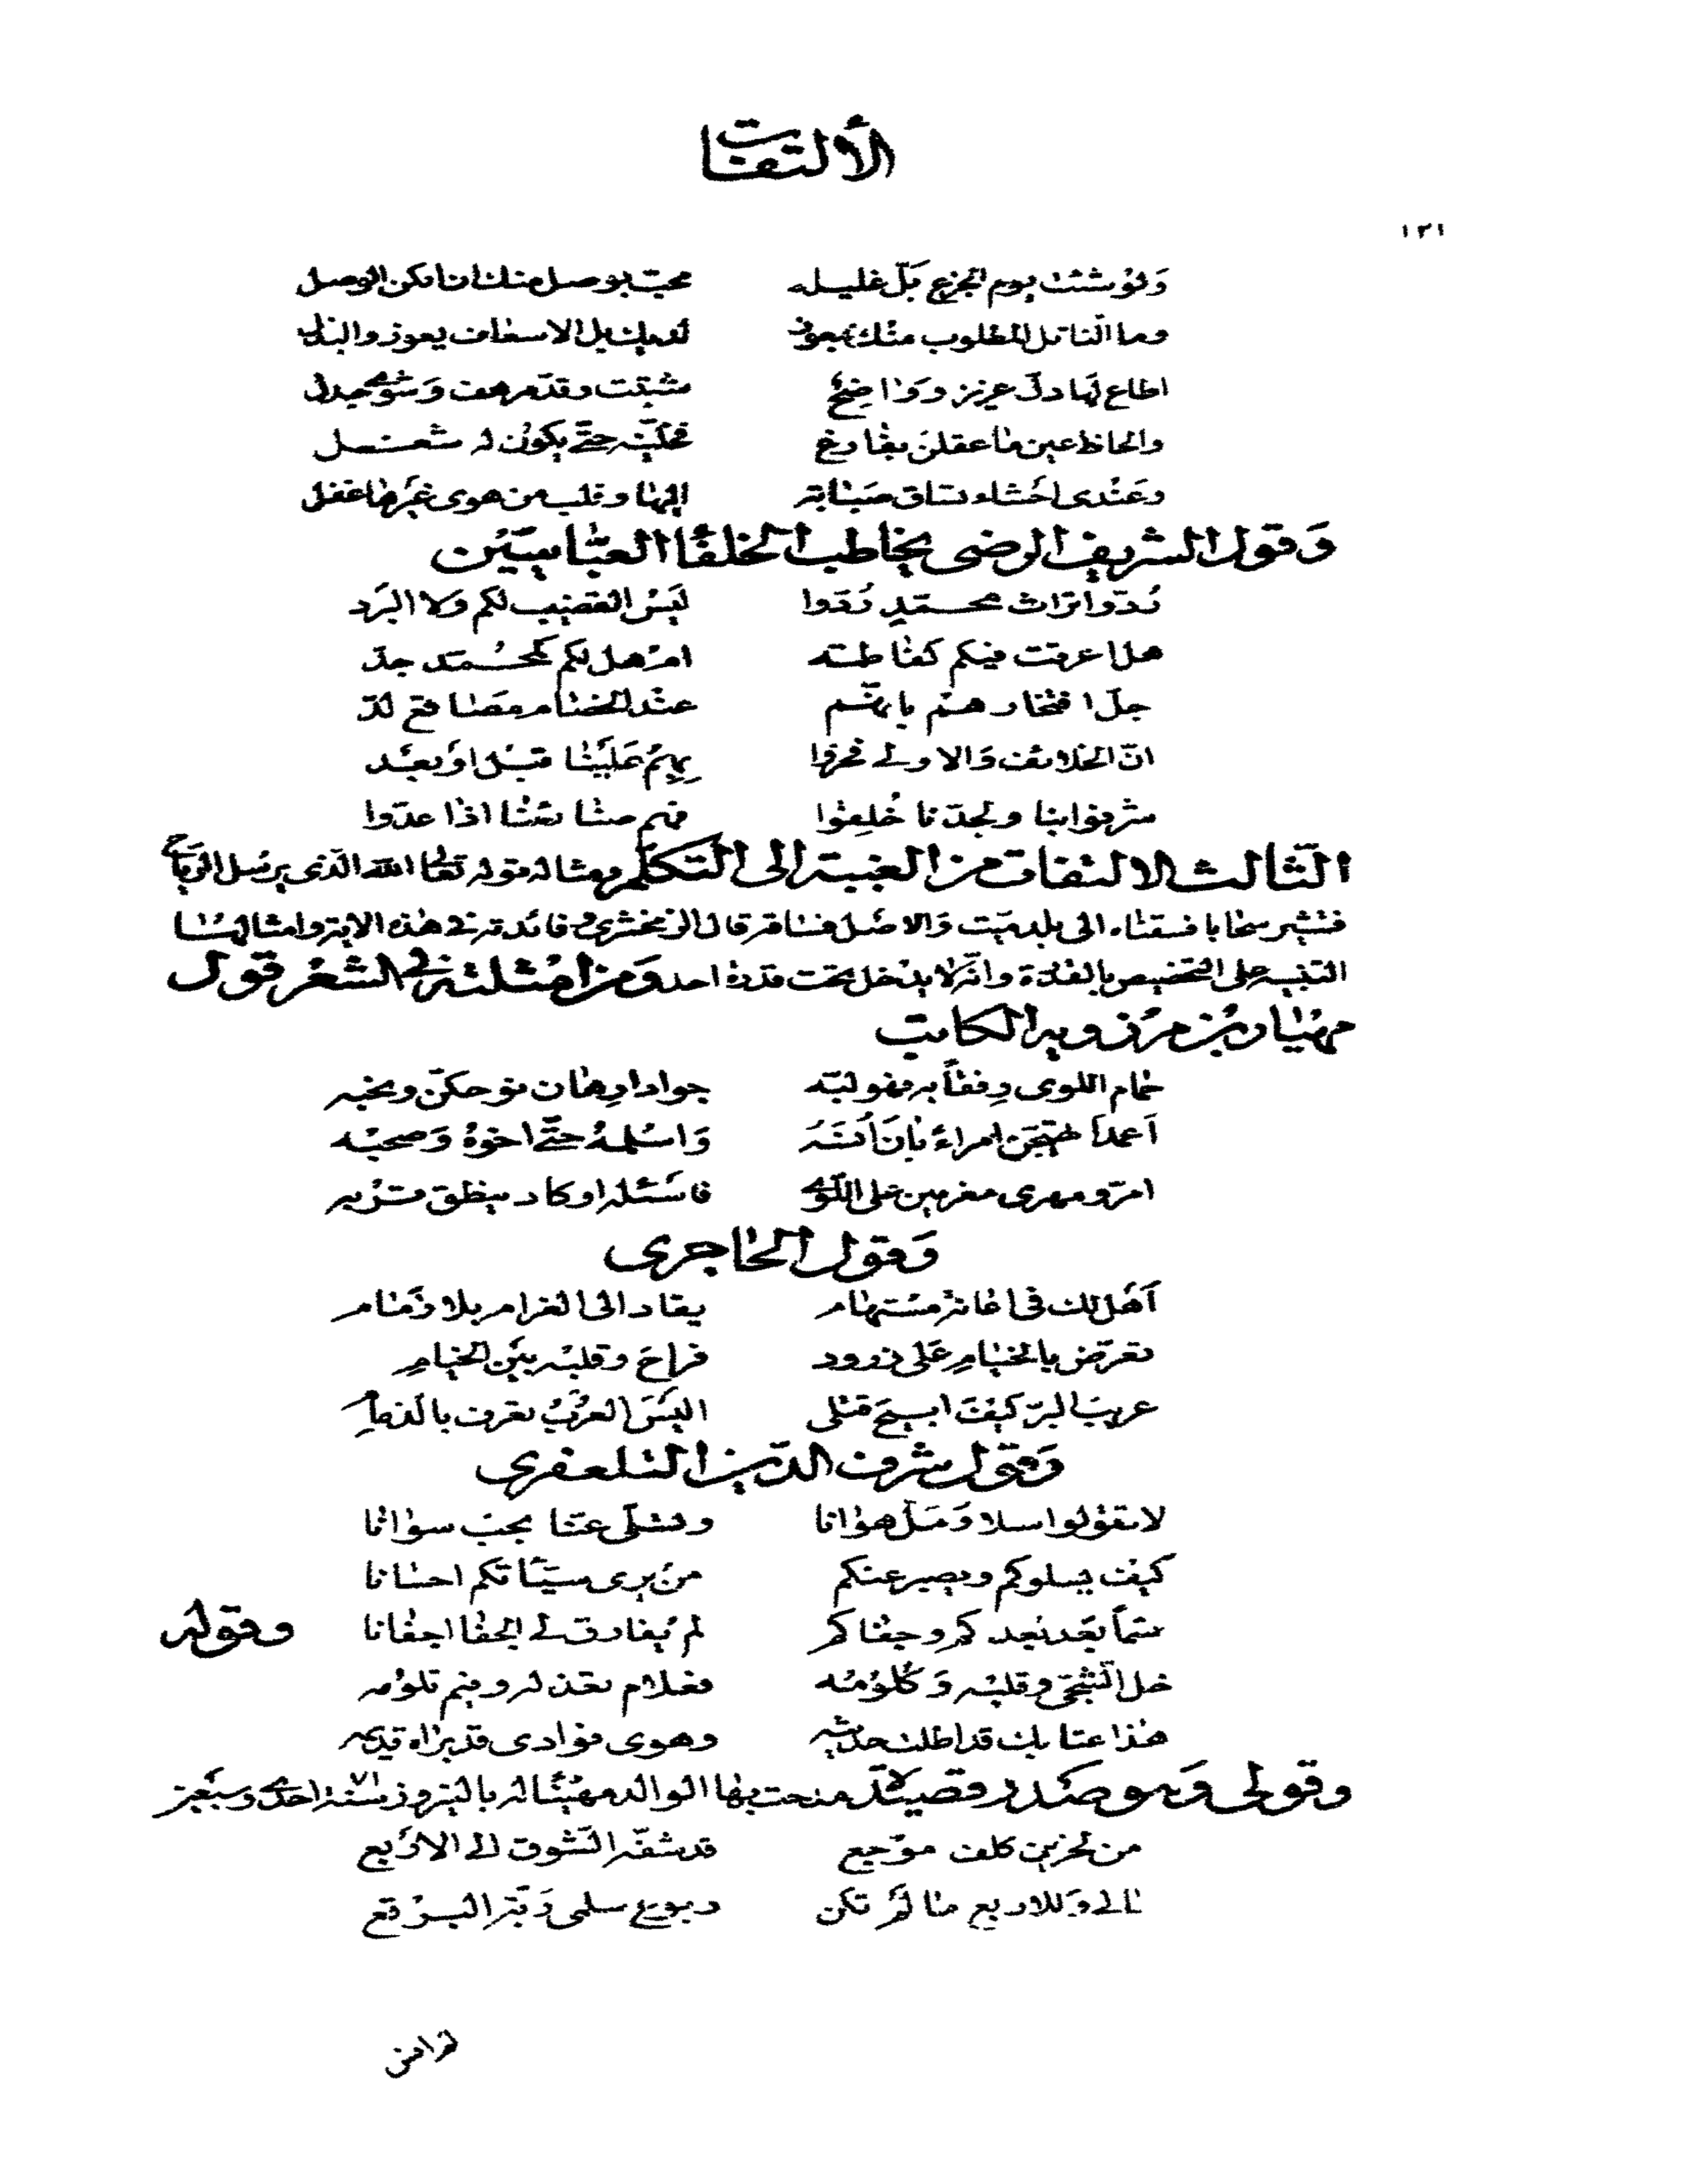 الألتفات
١٢١
وَلوْ شئت يوم الجزع بَلّ غليله محبّ بوصل منك ان امكن الوصل
وما النائل المطلوب منك بمعوز لديك بل الاسعاف يعوز والبذل
اطاع لها دلّ عزيز ووٰاضِحٌ شتيت وقدّ مرهف وَشوىً جدل
والحاظ عين مٰا عقلن بفٰارغ فخلّيْنه حتّى يكوْن له شغـــل
وعَنْدى احْشاء تساق صَبٰابة اليهٰا وقلب من هوى غيْرهٰا غفل
وَقول الشريف الرضى يخاطب الخلفاَء العبّاسيّيْن
رُدّوا تراث محــمّدٍ رُدّوا ليْسَ القضيب لكم ولا البُرد
هل اعرقت فيكم كفاطمـة امْ هل لكم كمحُــمّد جدّ
جلّ افتخارهــم بانّهــم عنْد الخصٰام مصٰاقع لُدّ
انّ الخلائف وَالاولى فخروا بِهِمُ عَلَيْنٰا قبْل اوْ بعْـد
شرفوا بنا ولجدّنا خُلِقوا فهم صنٰائعُنٰا اذٰا عدّوا
الثّالث الالتفات من الغيبة الى التكلّم ومثاله قوله تعٰالى اللّه الّذى يرْسل الريَاحَ
فتثير سحٰابا فسقنٰاه الى بلد ميّت وَالاصْل فسٰاقه قال الزمخشرىّ وفائدته فى هٰذه الاية وامثالهــا
التنبيه على التخصيص بالقدْرة وانّه لا يدْخل تحت قدرة احد وَمن امْثلته فى الشعْر قول
مهْيٰار بْن مرْزويه الكاتب
حمام اللوى رِفقاً به فهو لبّه جوادا رِهٰان نوحكنّ ونحبه
أعمداً تهيّجن امراءً بٰانَ أنسَهُ وَاسْلمهُ حتّى اخوهُ وَصحبْه
امرّ ومهرى مغرمين على اللّوى فاسْئله او كاد ينطق تـرْبه
وَقول الحٰاجرى
أهَل لك فى اغاثة مسْتهٰام يقاد الى الغرام بلا زمٰام
تعرّض بالخيٰامِ عَلى زرود فراحَ وقلبْه بيْن الخيامِ
عريبَ البرّ كيْفَ ابيحَ قتلى اليْسَ العرْبُ تعرف بالذمامِ
وَقول شرف الدّين التلعفرى
لا تقوْلوا سلا وَمَلّ هوٰانا وتسلّى عنّا بحبّ سوٰانٰا
كيْف يسلوكم ويصبر عنكم منْ يرى سيّئٰاتكم احسٰانا
لم يُفارق لى الجفا اجفٰانا وقوله
خلّ الشّجىّ وقلبْه وَكُلوُمُه فعلام تعذله وفيم تلوْمه
هٰذا عتابك قد اطلت حديثه وهوى فؤادى قد يرٰاه قديمه
وقولى وَهو صَدر قصيدَة مدحت بهٰا الوالد مهنّئا له بالنيروز سنة احدى وسبْعين
من لحزين كلف موْجع قد شفّه الشّوق الى الارْبع
مٰالى وَللاربع مٰا لمْ تكن ربوع سلمى رَبّة البــرْقع